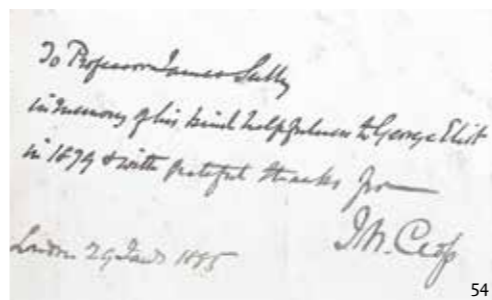 To Professor James Sully
in memory of his kind helpfulness to George Eliot
in 1879 & with grateful thanks from
J. W. Cross
London 29 Jany 1885
54